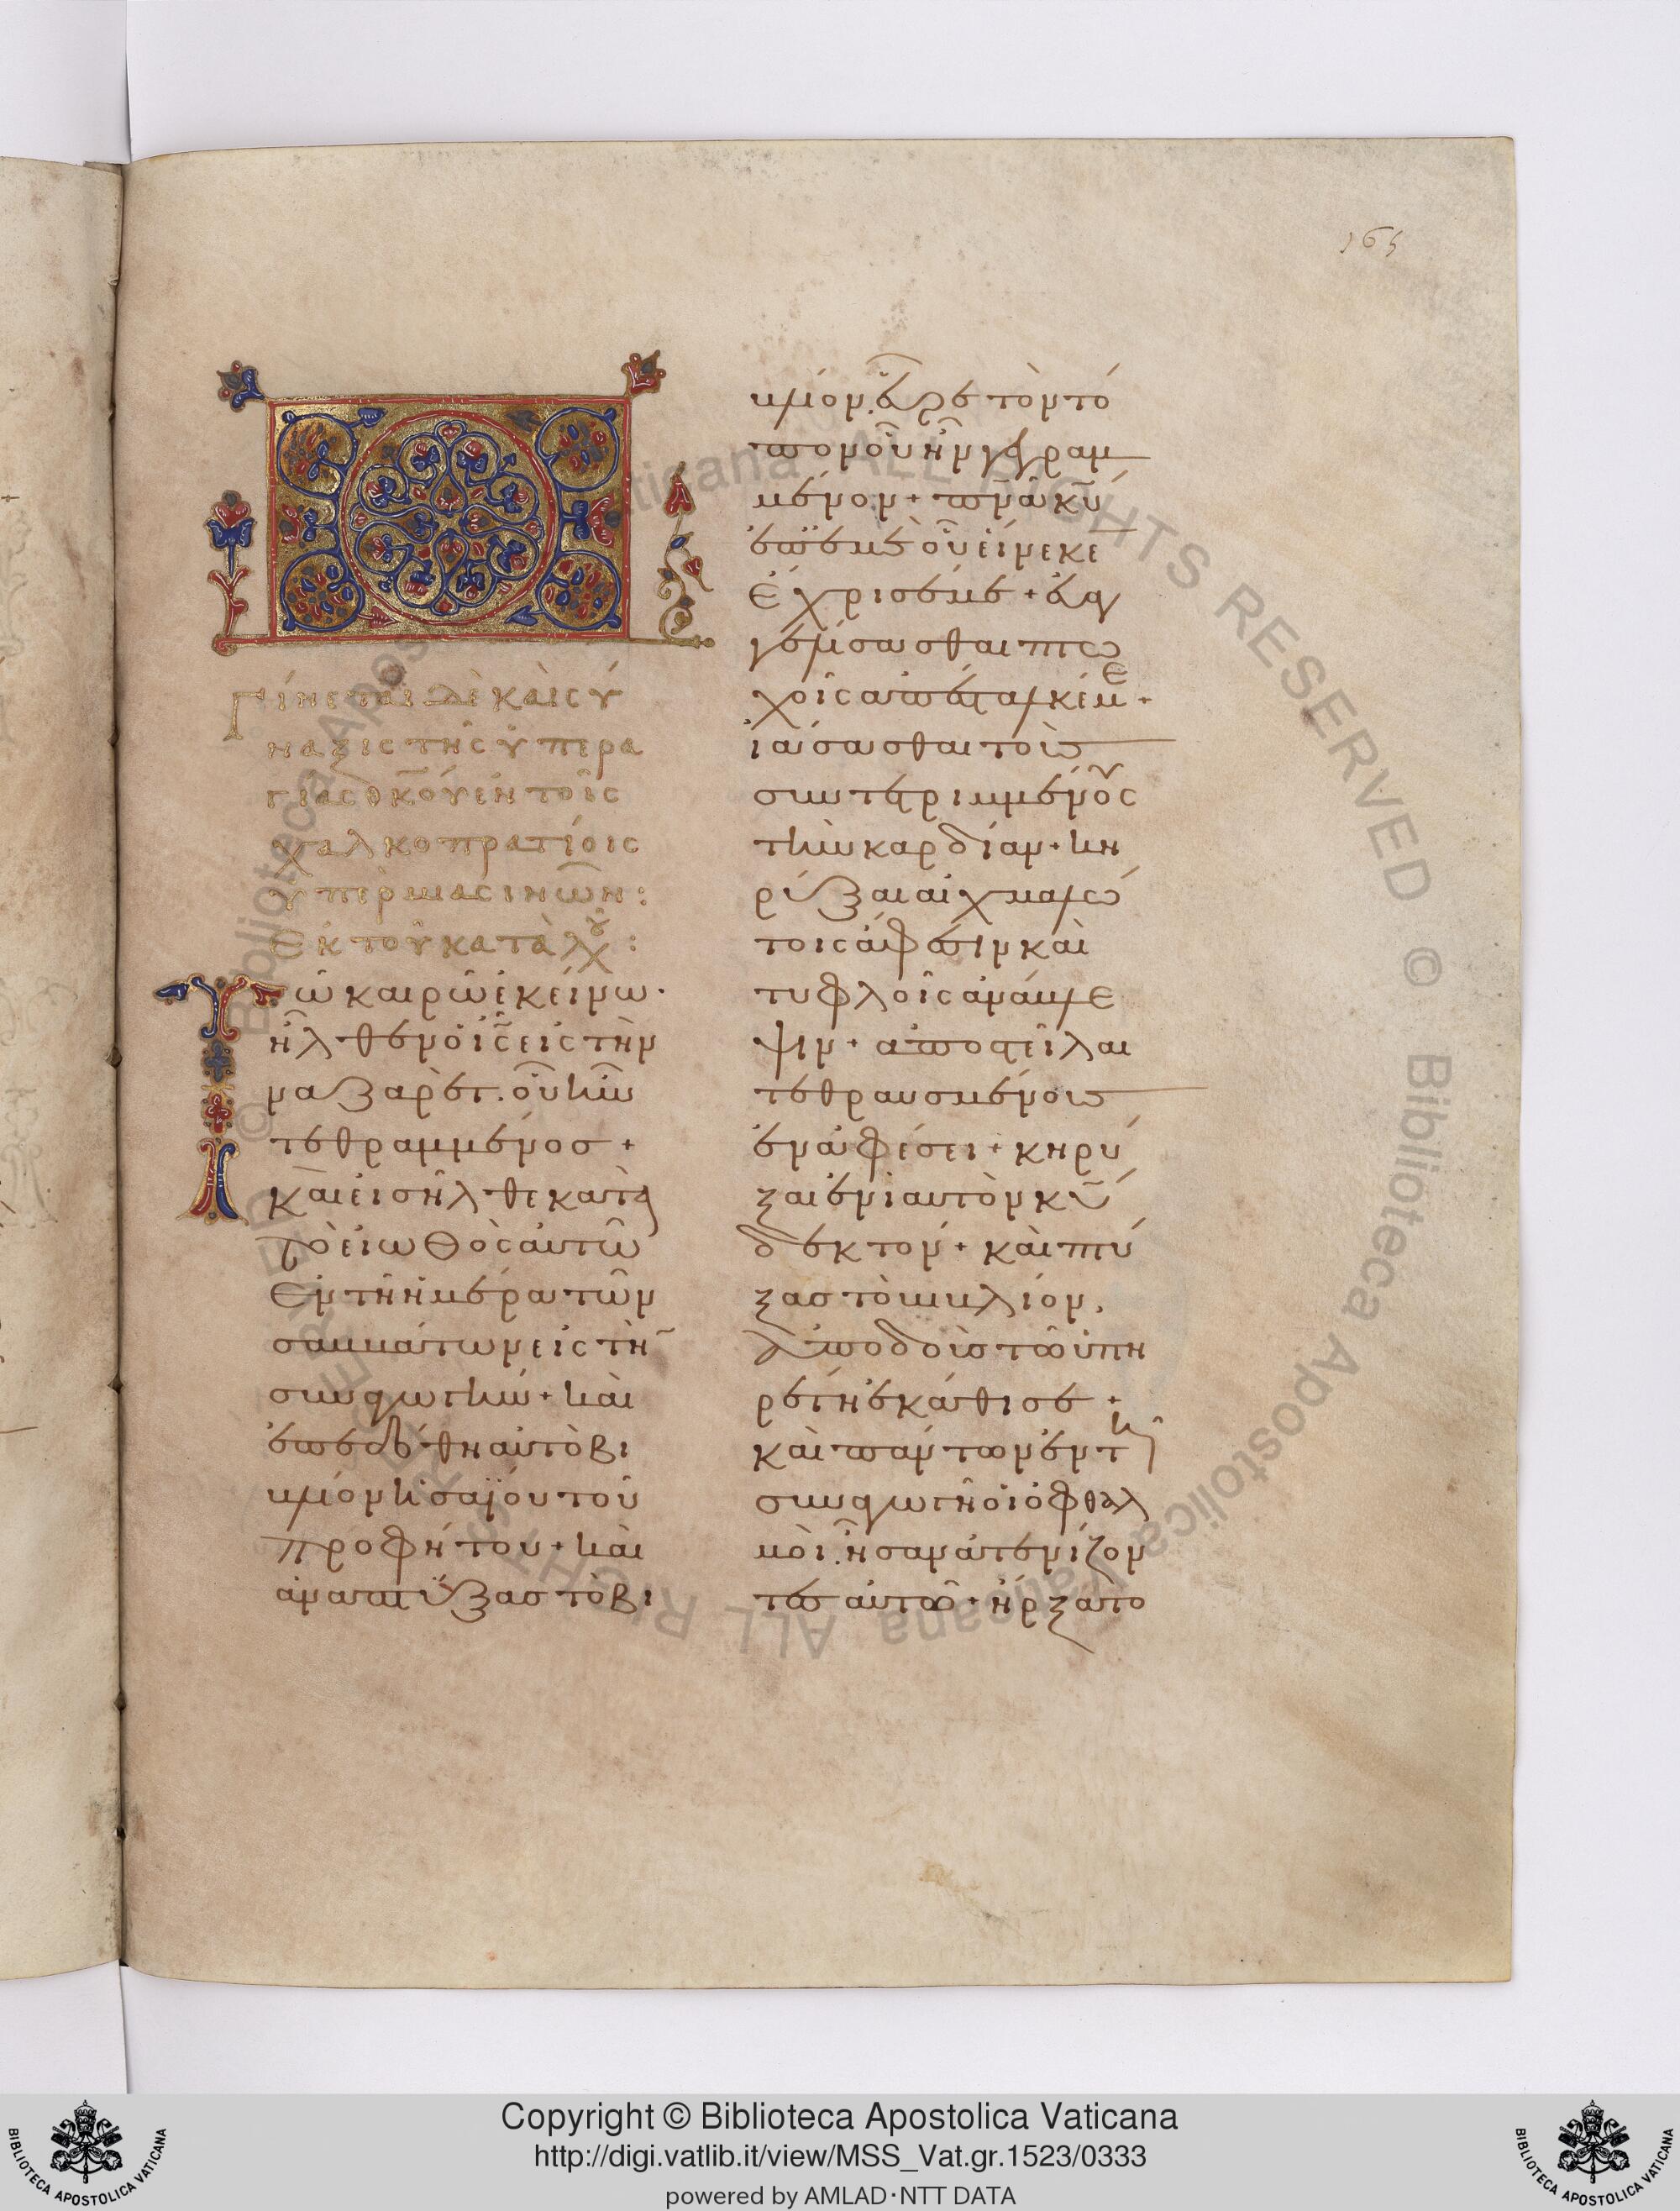 165
Γίνεται δὲ καὶ σύ
ναξις τῆς ὑπερα
γίας θκου ἐν τοῖς
χαλκοπρατίοις
ὑπὲρ μασινων:
Ἐκ τοῦ κατὰ λχ:
Τῶ καιρῶ ἐκείνω·
ἦλθεν ὁ ισ εἰς τὴν
ναζαρὲτ. οὗ ἦν
τεθραμμένος +
καὶ εἰσῆλθε κατὰ
τὸ εἰωθὸς αὐτῶ
ἐν τῆ ἡμέρα τῶν
σαββάτων εἰς τὴ
συναγωγὴν + καὶ
ἐπεδόθη αὐτὸ βι
βλίον ἡσαΐου τοῦ
προφήτου + καὶ
ἀναπτύξας τὸ βι
βλίον. εὗρε τὸν τό
πον οὗ ἦν γεγραμ
μένον + πνα κυ
ἐπ' ἐμὲ οὗ εἵνεκε
ἔχρισέ με + εὐαγ
γελίσασθαι πτω
χοῖς ἀπέσταλκέ με +
ἰάσασθαι τοὺς
συντετριμμένους
τὴν καρδίαν + κη
ρύξαι αἰχμαλώ
τοις ἄφεσιν καὶ
τυφλοῖς ἀνάβλε
ψιν + ἀποστεῖλαι
τεθραυσμένους
ἐν ἀφέσει + κηρύ
ξαι ἐνιαυτὸν κυ
δεκτόν + καὶ πτύ
ξας τὸ βιβλίον,
ἀποδοὺς τῶ ὑπη
ρέτη ἐκάθισε +
καὶ πάντων ἐν τῆ
συναγωγῆ οἱ ὀφθαλ
μοὶ. ἦσαν ἀτενίζον
τες αὐτῶ + ἤρξατο
Copyright © Biblioteca Apostolica Vaticana
http://digi.vatlib.it/view/MSS_Vat.gr.1523/0333
powered by AMLAD·NTT DATA
BIBLIOTECA APOSTOLICA VATICANA
BIBLIOTECA APOSTOLICA VATICANA